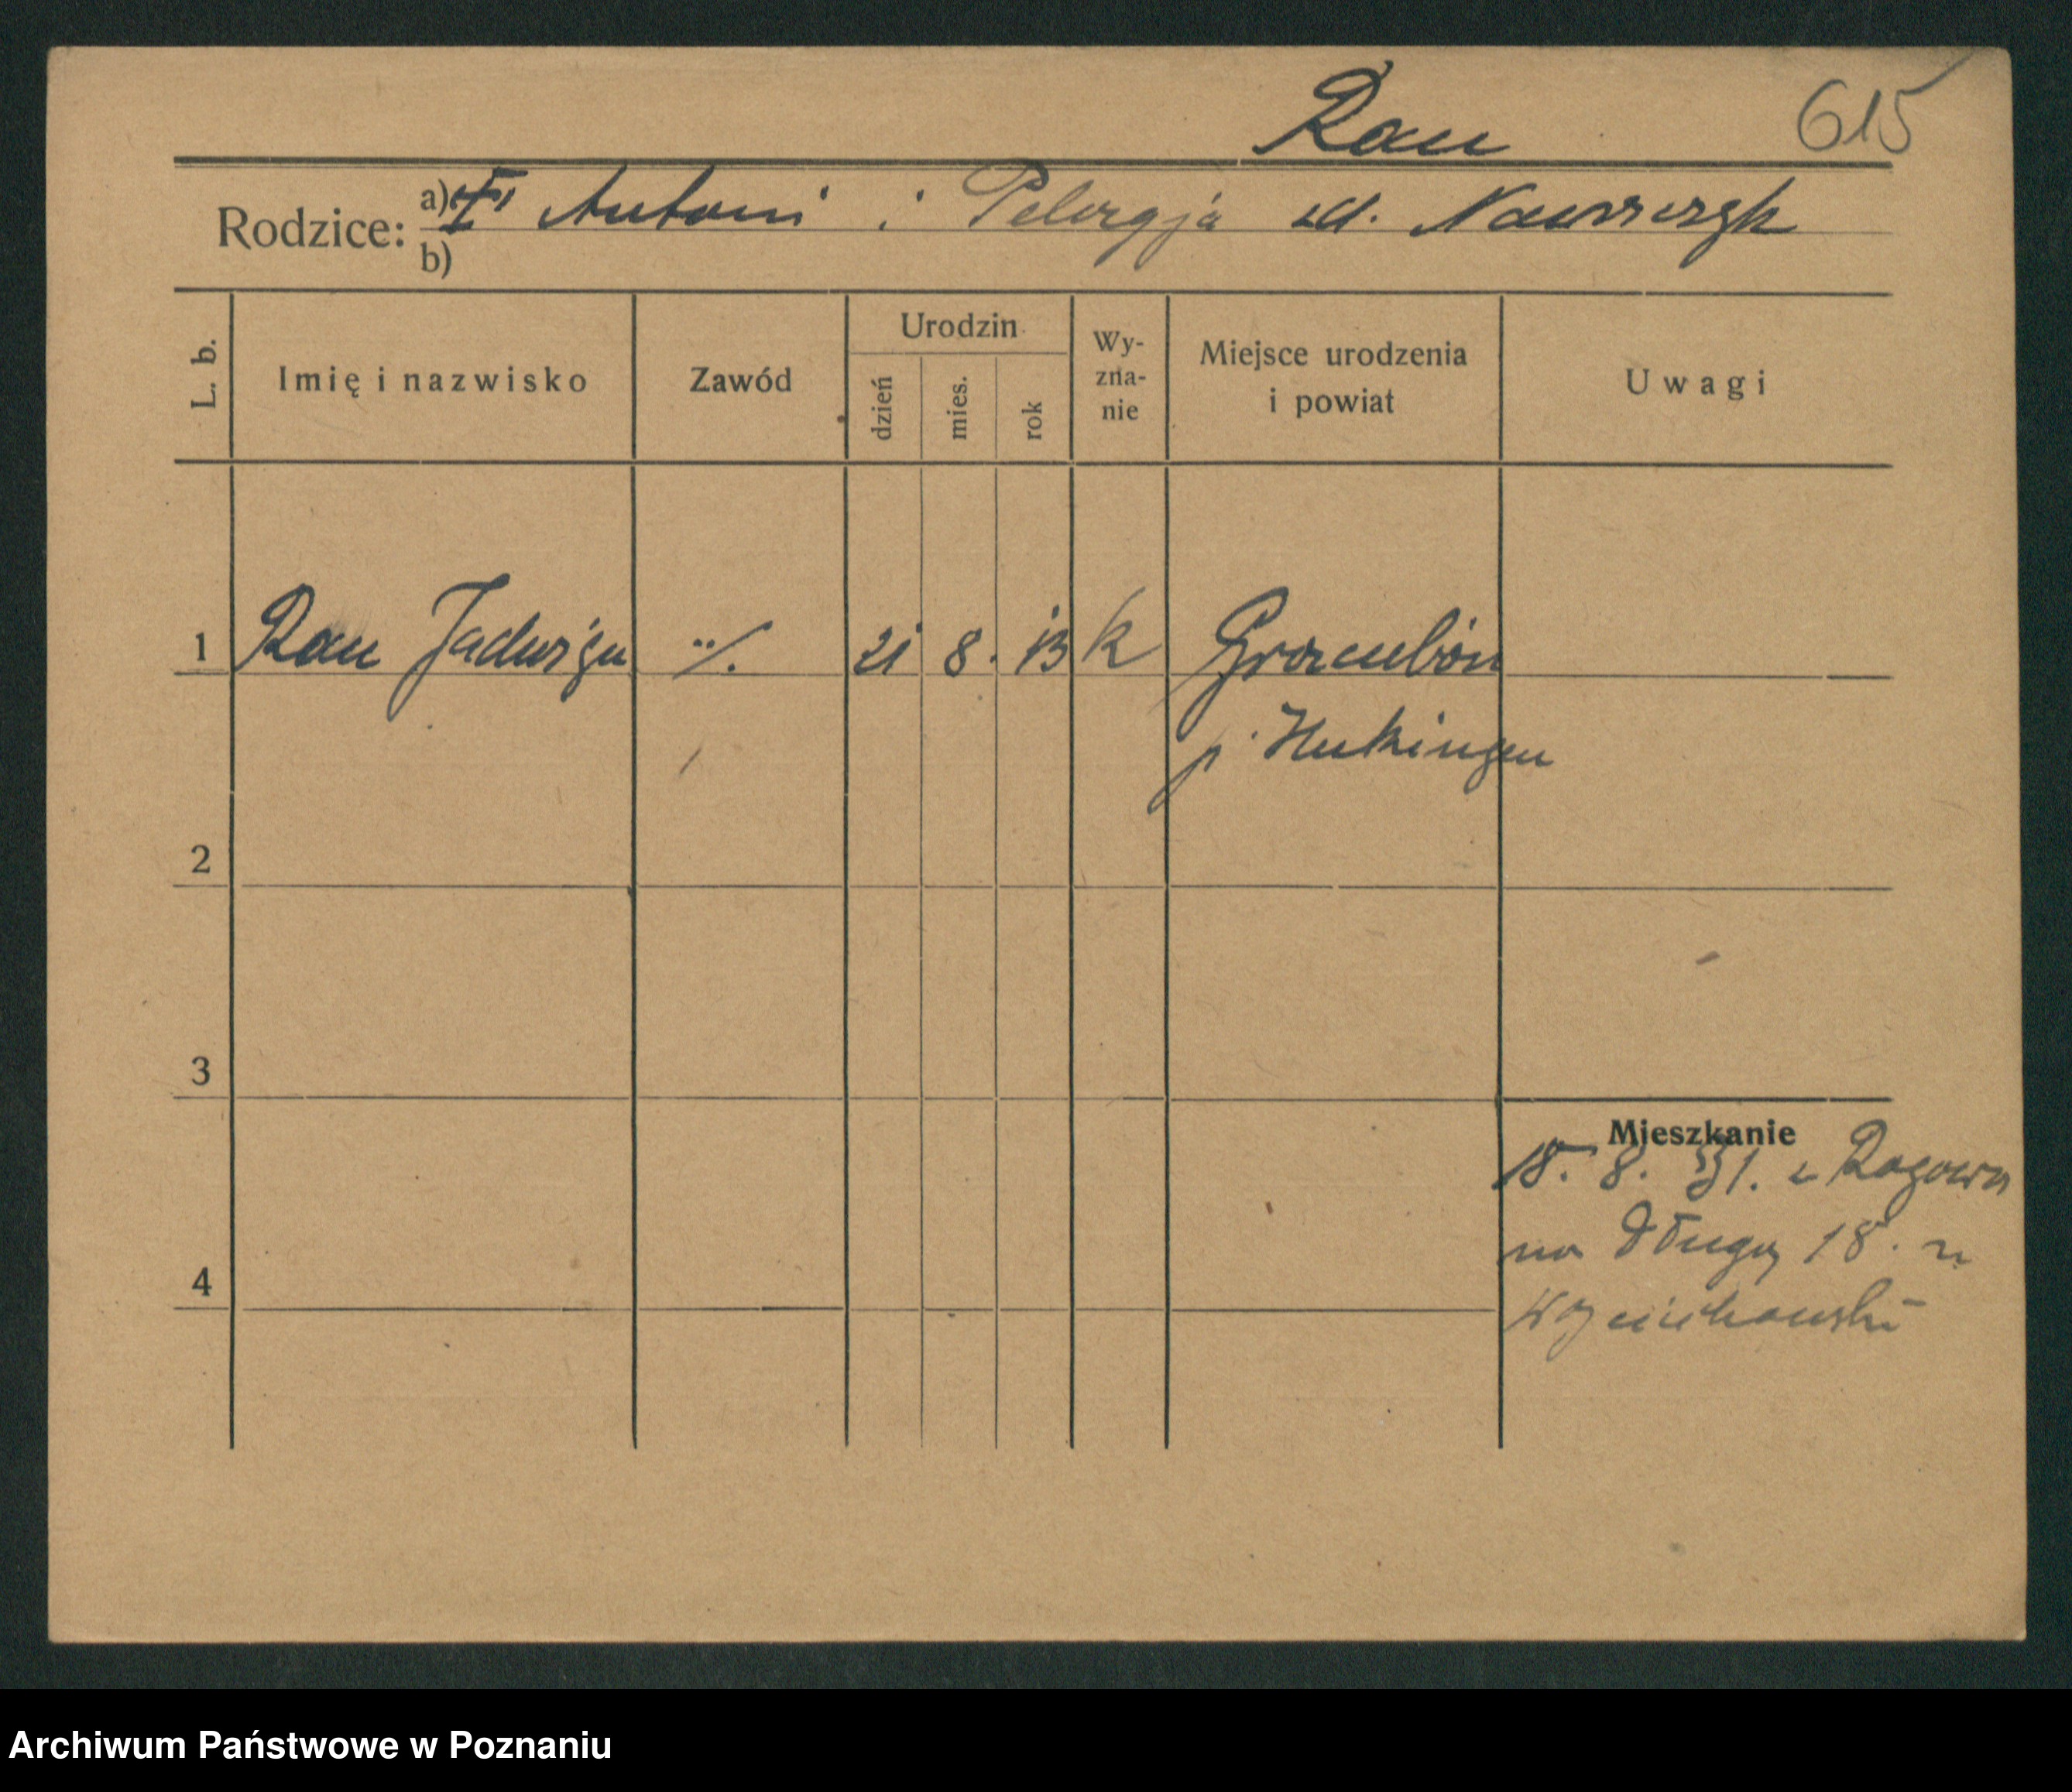 Rau 615
Rodzice: a) Antoni i Pelagja zd. Nawrczyk
b)
L. b. Imię i nazwisko Zawód Urodzin dzień mies. rok Wy-zna-nie Miejsce urodzenia i powiat Uwagi
1 Rau Jadwiga ·/. 21 8. 13 k
p. Hukingen
2
3
Mieszkanie
18. 8. 31. z Rogowa
na Długą 18. u
4
Wojciechowski
Archiwum Państwowe w Poznaniu